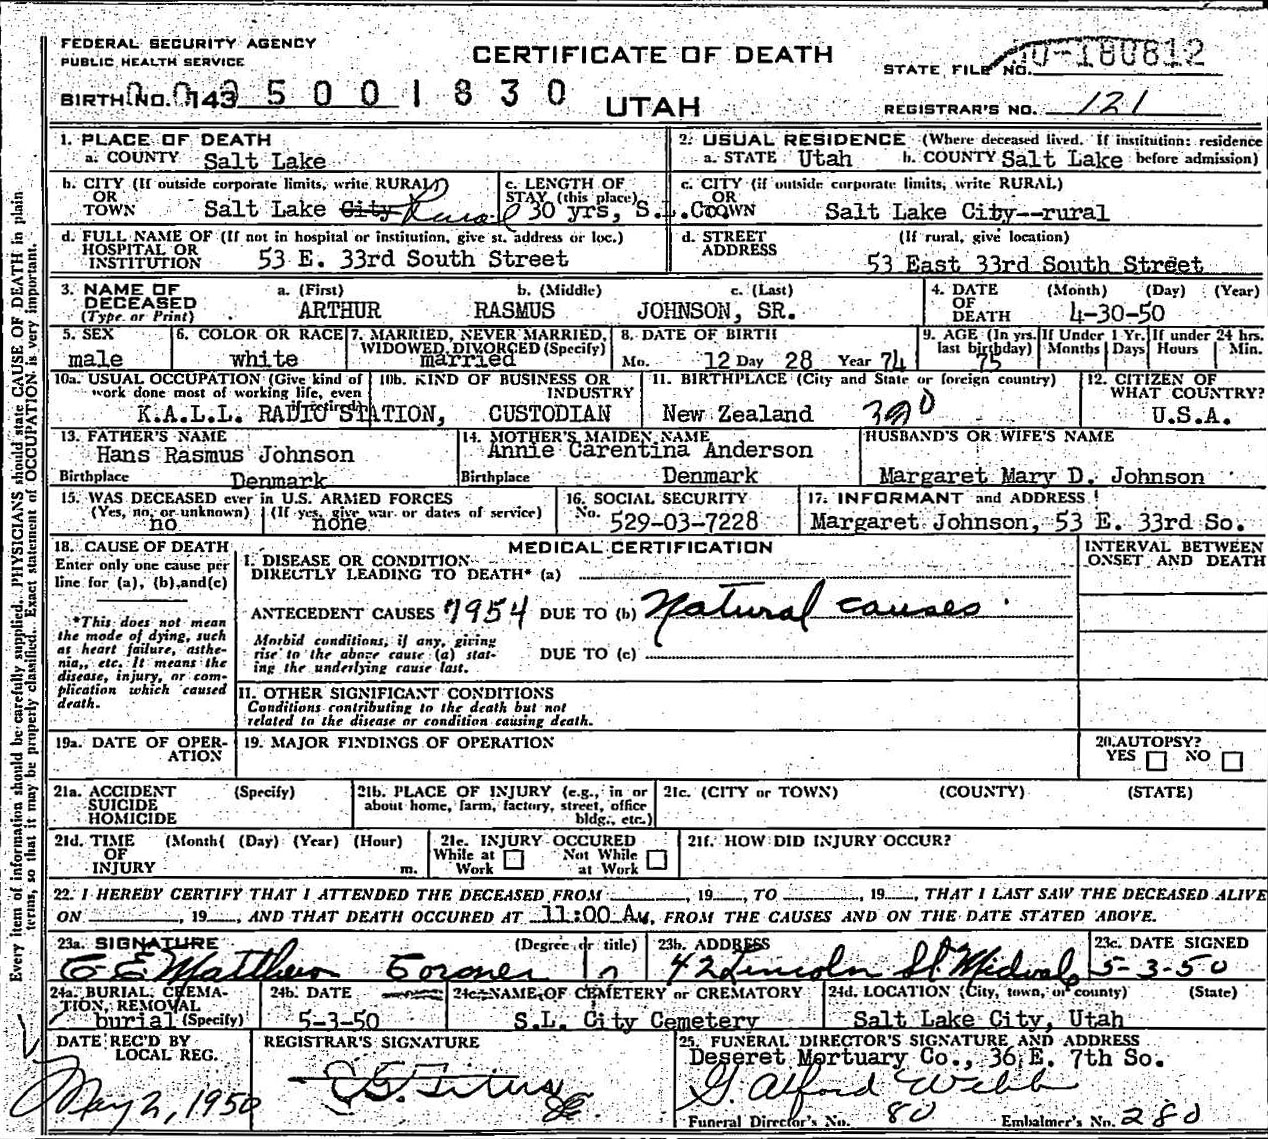 FEDERAL SECURITY AGENCY
PUBLIC HEALTH SERVICE
CERTIFICATE OF DEATH
UTAH
STATE FILE NO. 50-180812
BIRTH NO. 143 5001830
REGISTRAR'S NO. 121
1. PLACE OF DEATH
a. COUNTY Salt Lake
2. USUAL RESIDENCE (Where deceased lived. If institution: residence before admission)
a. STATE Utah b. COUNTY Salt Lake
b. CITY (If outside corporate limits, write RURAL) OR TOWN Salt Lake City Rural
c. LENGTH OF STAY (this place) 30 yrs, S.L.Co.
c. CITY (if outside corporate limits, write RURAL) OR TOWN Salt Lake City--rural
d. FULL NAME OF (If not in hospital or institution, give st. address or loc.) HOSPITAL OR INSTITUTION 53 E. 33rd South Street
d. STREET ADDRESS (If rural, give location) 53 East 33rd South Street
3. NAME OF DECEASED (Type or Print)
a. (First) ARTHUR b. (Middle) RASMUS c. (Last) JOHNSON, SR.
4. DATE OF DEATH (Month) (Day) (Year) 4-30-50
5. SEX male
6. COLOR OR RACE white
7. MARRIED, NEVER MARRIED, WIDOWED, DIVORCED (Specify) married
8. DATE OF BIRTH Mo. 12 Day 28 Year 74
9. AGE (In yrs. last birthday) 75 If Under 1 Yr. Months Days If under 24 hrs. Hours Min.
10a. USUAL OCCUPATION (Give kind of work done most of working life, even if retired) K.A.L.L. RADIO STATION,
10b. KIND OF BUSINESS OR INDUSTRY CUSTODIAN
11. BIRTHPLACE (City and State or foreign country) New Zealand 390
12. CITIZEN OF WHAT COUNTRY? U.S.A.
13. FATHER'S NAME Hans Rasmus Johnson
Birthplace Denmark
14. MOTHER'S MAIDEN NAME Annie Carentina Anderson
Birthplace Denmark
HUSBAND'S OR WIFE'S NAME Margaret Mary D. Johnson
15. WAS DECEASED ever in U.S. ARMED FORCES
(Yes, no, or unknown) no (If yes, give war or dates of service) none
16. SOCIAL SECURITY No. 529-03-7228
17. INFORMANT and ADDRESS Margaret Johnson, 53 E. 33rd So.
18. CAUSE OF DEATH
Enter only one cause per line for (a), (b), and (c)
*This does not mean the mode of dying, such as heart failure, asthenia, etc. It means the disease, injury, or complication which caused death.
MEDICAL CERTIFICATION
INTERVAL BETWEEN ONSET AND DEATH
I. DISEASE OR CONDITION DIRECTLY LEADING TO DEATH* (a)
ANTECEDENT CAUSES 7954 DUE TO (b) Natural causes
Morbid conditions, if any, giving rise to the above cause (a) stating the underlying cause last.
DUE TO (c)
II. OTHER SIGNIFICANT CONDITIONS
Conditions contributing to the death but not related to the disease or condition causing death.
19a. DATE OF OPERATION
19. MAJOR FINDINGS OF OPERATION
20. AUTOPSY? YES NO
21a. ACCIDENT SUICIDE HOMICIDE (Specify)
21b. PLACE OF INJURY (e.g., in or about home, farm, factory, street, office bldg., etc.)
21c. (CITY or TOWN) (COUNTY) (STATE)
21d. TIME OF INJURY (Month( (Day) (Year) (Hour) m.
21e. INJURY OCCURED While at Work Not While at Work
21f. HOW DID INJURY OCCUR?
22. I HEREBY CERTIFY THAT I ATTENDED THE DECEASED FROM , 19 TO , 19 , THAT I LAST SAW THE DECEASED ALIVE
ON , 19 , AND THAT DEATH OCCURED AT 11:00 A m, FROM THE CAUSES AND ON THE DATE STATED ABOVE.
23a. SIGNATURE (Degree or title) C E Matthews Coroner
23b. ADDRESS 42 Lincoln St Midvale
23c. DATE SIGNED 5-3-50
24a. BURIAL, CREMATION, REMOVAL (Specify) burial
24b. DATE 5-3-50
24c. NAME OF CEMETERY or CREMATORY S.L. City Cemetery
24d. LOCATION (City, town, or county) (State) Salt Lake City, Utah
DATE REC'D BY LOCAL REG. May 2, 1950
REGISTRAR'S SIGNATURE
25. FUNERAL DIRECTOR'S SIGNATURE AND ADDRESS
Deseret Mortuary Co., 36 E. 7th So.
G. Alford Webb
Funeral Director's No. 80 Embalmer's No. 280
Every item of information should be carefully supplied. PHYSICIANS should state CAUSE OF DEATH in plain
terms, so that it may be properly classified. Exact statement of OCCUPATION is very important.